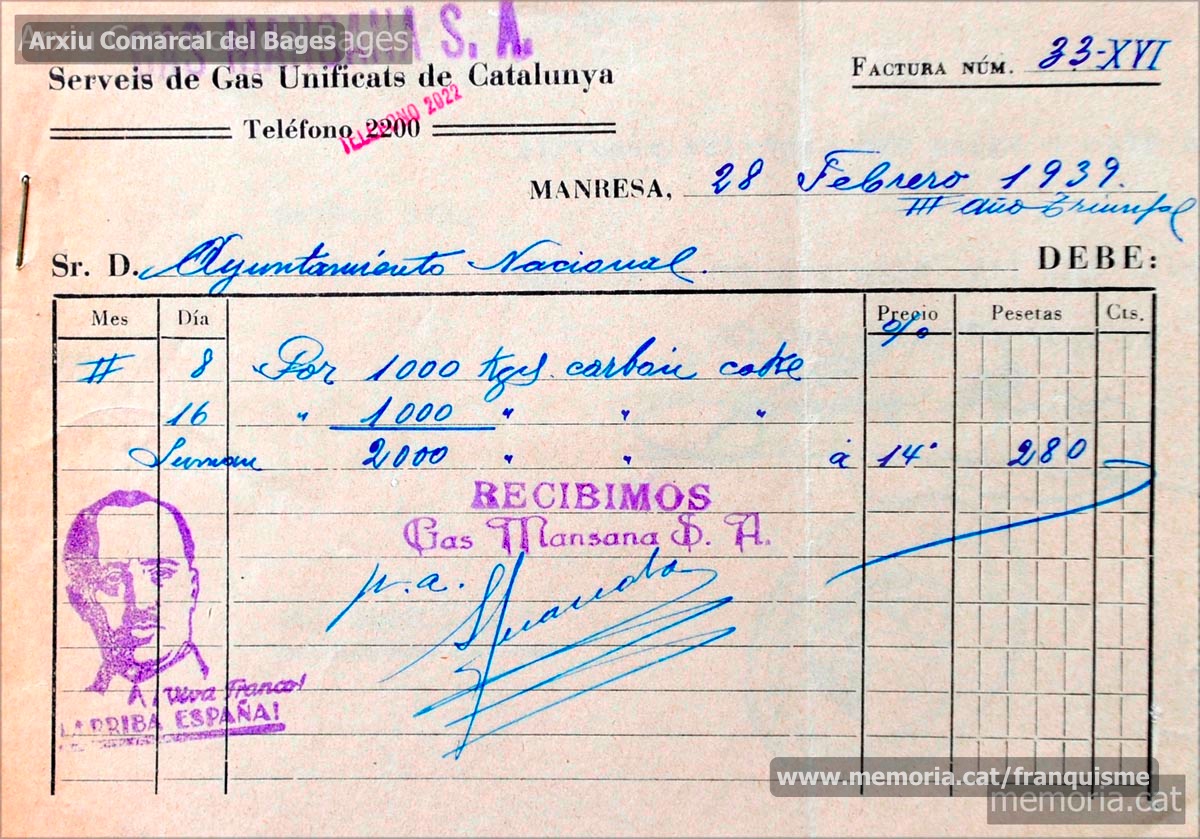 GAS MANSANA S. A.
Arxiu Comarcal del Bages
Serveis de Gas Unificats de Catalunya
FACTURA NÚM. 33-XVI
Teléfono 2200
TELEFONO 2022
MANRESA, 28 Febrero 1939.
III año Triunfal
Sr. D. Ayuntamiento Nacional. DEBE:
Mes Día Precio Pesetas Cts.
%
II 8 Por 1000 Kgs. carbón coke
16 " 1000 " " "
Suman 2000 " " á 14' 280
RECIBIMOS
Gas Mansana S. A.
p. a.
¡Viva Franco!
¡ARRIBA ESPAÑA!
www.memoria.cat/franquisme
memoria.cat